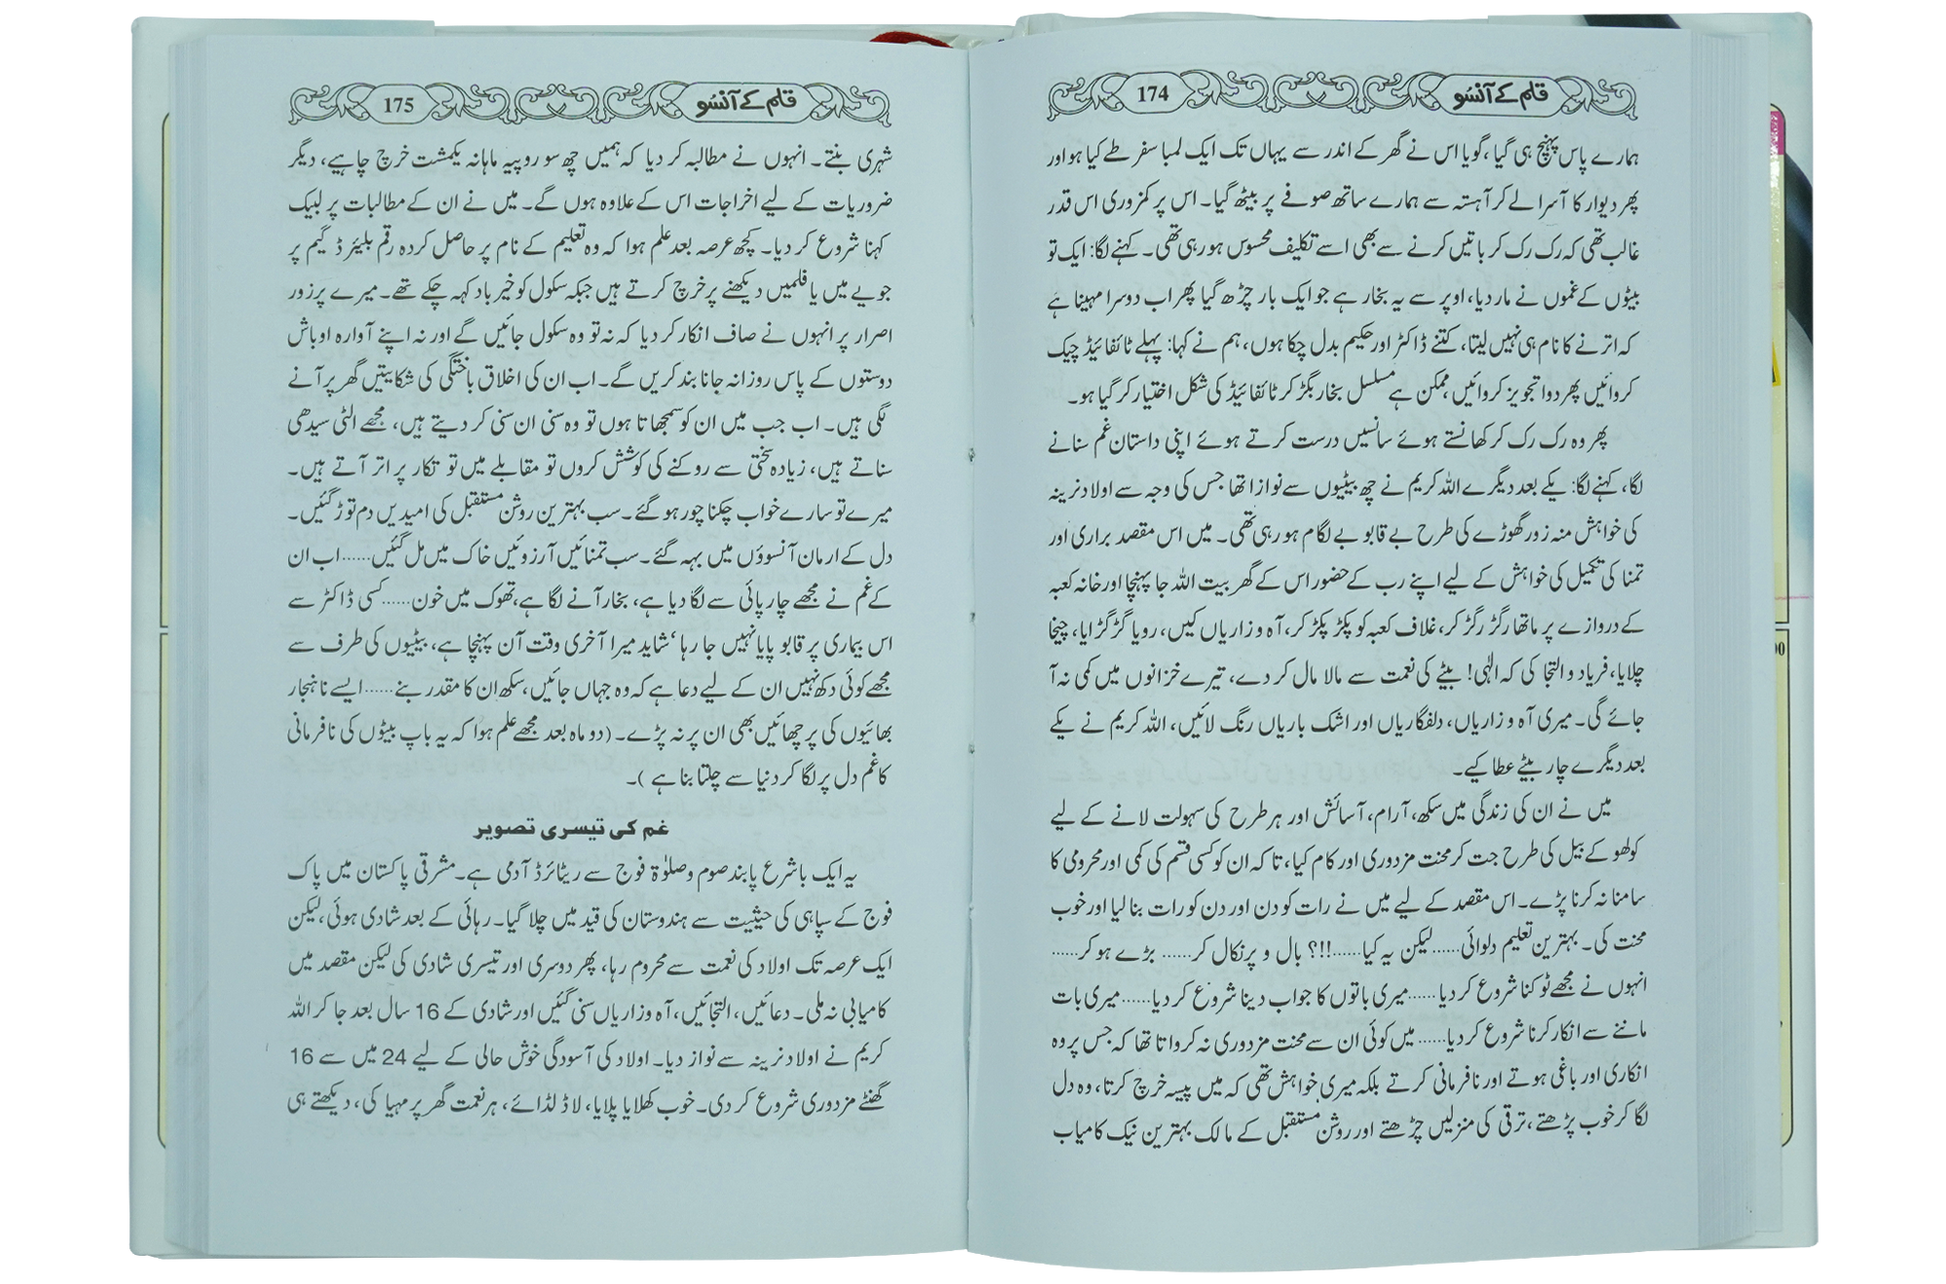 قلم کے آنسو
174
ہمارے پاس پہنچ ہی گیا، گویا اس نے گھر کے اندر سے یہاں تک ایک لمبا سفر طے کیا ہو اور
پھر دیوار کا آسرا لے کر آہستہ سے ہمارے ساتھ صوفے پر بیٹھ گیا۔ اس پر کمزوری اس قدر
غالب تھی کہ رک رک کر باتیں کرنے سے بھی اسے تکلیف محسوس ہو رہی تھی۔ کہنے لگا: ایک تو
بیٹوں کے غموں نے مار دیا، اوپر سے یہ بخار ہے جو ایک بار چڑھ گیا پھر اب دوسرا مہینا ہے
کہ اترنے کا نام ہی نہیں لیتا، کتنے ڈاکٹر اور حکیم بدل چکا ہوں، ہم نے کہا: پہلے ٹائفائیڈ چیک
کروائیں پھر دوا تجویز کروائیں ممکن ہے مسلسل بخار بگڑ کر ٹائفائیڈ کی شکل اختیار کر گیا ہو۔
پھر وہ رک رک کر کھانستے ہوئے سانسیں درست کرتے ہوئے اپنی داستان غم سنانے
لگا، کہنے لگا: یکے بعد دیگرے اللہ کریم نے چھ بیٹیوں سے نوازا تھا جس کی وجہ سے اولاد نرینہ
کی خواہش منہ زور گھوڑے کی طرح بے قابو بے لگام ہو رہی تھی۔ میں اس مقصد براری اور
تمنا کی تکمیل کی خواہش کے لیے اپنے رب کے حضور اس کے گھر بیت اللہ جا پہنچا اور خانہ کعبہ
کے دروازے پر ماتھا رگڑ رگڑ کر، غلاف کعبہ کو پکڑ پکڑ کر، آہ و زاریاں کیں، رویا گڑگڑایا، چیخا
چلایا، فریاد و التجا کی کہ الٰہی! بیٹے کی نعمت سے مالا مال کر دے، تیرے خزانوں میں کمی نہ آ
جائے گی۔ میری آہ و زاریاں، دلفگاریاں اور اشک باریاں رنگ لائیں، اللہ کریم نے یکے
بعد دیگرے چار بیٹے عطا کیے۔
میں نے ان کی زندگی میں سکھ، آرام، آسائش اور ہر طرح کی سہولت لانے کے لیے
کولھو کے بیل کی طرح جت کر محنت مزدوری اور کام کیا، تا کہ ان کو کسی قسم کی کمی اور محرومی کا
سامنا نہ کرنا پڑے۔ اس مقصد کے لیے میں نے رات کو دن اور دن کو رات بنا لیا اور خوب
محنت کی۔ بہترین تعلیم دلوائی......لیکن یہ کیا......!!!؟ بال و پر نکال کر...... بڑے ہو کر......
انہوں نے مجھے ٹوکنا شروع کر دیا......میری باتوں کا جواب دینا شروع کر دیا......میری بات
ماننے سے انکار کرنا شروع کر دیا...... میں کوئی ان سے محنت مزدوری نہ کرواتا تھا کہ جس پر وہ
انکاری اور باغی ہوتے اور نافرمانی کرتے بلکہ میری خواہش تھی کہ میں پیسہ خرچ کرتا، وہ دل
لگا کر خوب پڑھتے، ترقی کی منزلیں چڑھتے اور روشن مستقبل کے مالک بہترین نیک کامیاب
قلم کے آنسو
175
شہری بنتے۔ انہوں نے مطالبہ کر دیا کہ ہمیں چھ سو روپیہ ماہانہ یکمشت خرچ چاہیے، دیگر
ضروریات کے لیے اخراجات اس کے علاوہ ہوں گے۔ میں نے ان کے مطالبات پر لبیک
کہنا شروع کر دیا۔ کچھ عرصہ بعد علم ہوا کہ وہ تعلیم کے نام پر حاصل کردہ رقم بلیئرڈ گیم پر
جوے میں یا فلمیں دیکھنے پر خرچ کرتے ہیں جبکہ سکول کو خیر باد کہہ چکے تھے۔ میرے پر زور
اصرار پر انہوں نے صاف انکار کر دیا کہ نہ تو وہ سکول جائیں گے اور نہ اپنے آوارہ اوباش
دوستوں کے پاس روزانہ جانا بند کریں گے۔ اب ان کی اخلاق باختگی کی شکایتیں گھر پر آنے
لگی ہیں۔ اب جب میں ان کو سمجھاتا ہوں تو وہ سنی ان سنی کر دیتے ہیں، مجھے الٹی سیدھی
سناتے ہیں، زیادہ سختی سے روکنے کی کوشش کروں تو مقابلے میں تو تکار پر اتر آتے ہیں۔
میرے تو سارے خواب چکنا چور ہو گئے۔ سب بہترین روشن مستقبل کی امیدیں دم توڑ گئیں۔
دل کے ارمان آنسوؤں میں بہہ گئے۔ سب تمنائیں آرزوئیں خاک میں مل گئیں......اب ان
کے غم نے مجھے چارپائی سے لگا دیا ہے، بخار آنے لگا ہے، تھوک میں خون......کسی ڈاکٹر سے
اس بیماری پر قابو پایا نہیں جا رہا‘ شاید میرا آخری وقت آن پہنچا ہے، بیٹیوں کی طرف سے
مجھے کوئی دکھ نہیں ان کے لیے دعا ہے کہ وہ جہاں جائیں، سکھ ان کا مقدر بنے......ایسے ناہنجار
بھائیوں کی پرچھائیں بھی ان پر نہ پڑے۔ (دو ماہ بعد مجھے علم ہوا کہ یہ باپ بیٹوں کی نافرمانی
کا غم دل پر لگا کر دنیا سے چلتا بنا ہے )۔
غم کی تیسری تصویر
یہ ایک باشرع پابند صوم وصلوٰۃ فوج سے ریٹائرڈ آدمی ہے۔ مشرقی پاکستان میں پاک
فوج کے سپاہی کی حیثیت سے ہندوستان کی قید میں چلا گیا۔ رہائی کے بعد شادی ہوئی، لیکن
ایک عرصہ تک اولاد کی نعمت سے محروم رہا، پھر دوسری اور تیسری شادی کی لیکن مقصد میں
کامیابی نہ ملی۔ دعائیں، التجائیں، آہ و زاریاں سنی گئیں اور شادی کے 16 سال بعد جا کر اللہ
کریم نے اولاد نرینہ سے نواز دیا۔ اولاد کی آسودگی خوش حالی کے لیے 24 میں سے 16
گھنٹے مزدوری شروع کر دی۔ خوب کھلایا پلایا، لاڈ لڈائے، ہر نعمت گھر پر مہیا کی، دیکھتے ہی